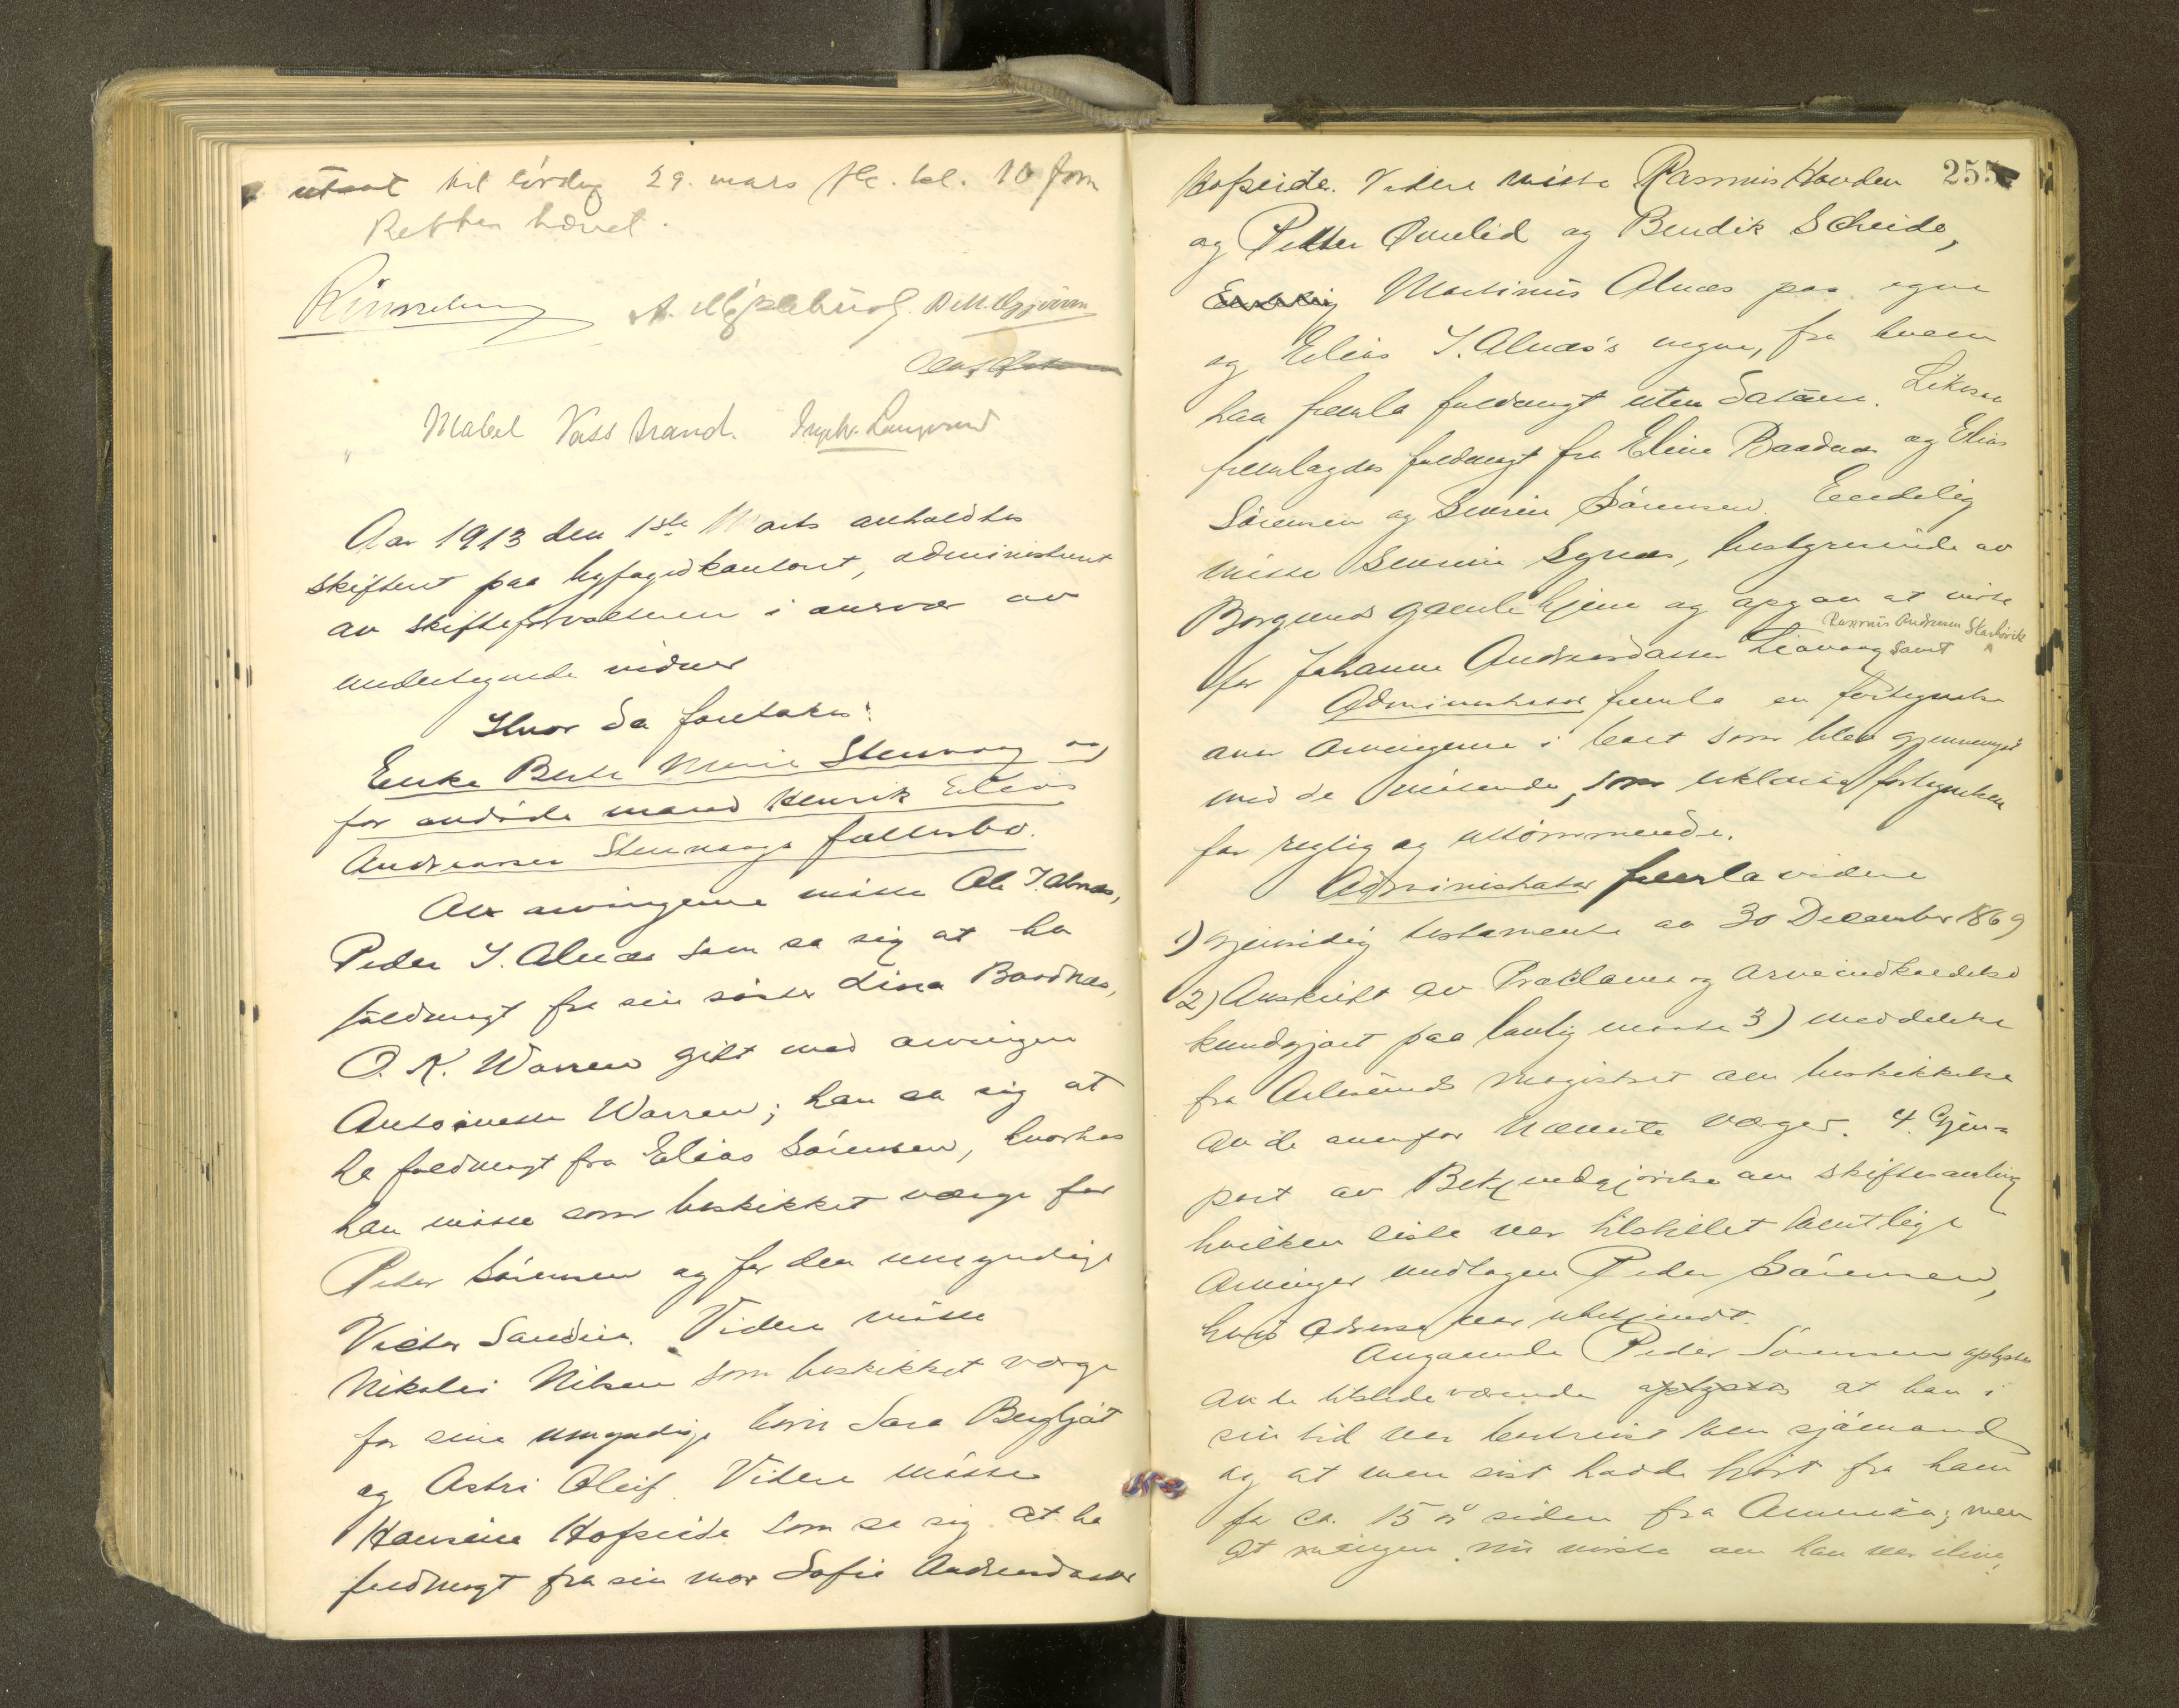 utsat til lördag 29. mars kl. 10 form
Retten hævet.
Mabel Vasstrand.
Aar 1913 den 1ste Marts anholdtes
skifteret paa byfogedkontoret, administrert
av skifteforvalteren i nærvær av
undertegnede vidner
Hvor da foretokes:
Enke Berte Marie Stenvaag og
før avdöde mand Henrik Elias
Andreassen Stenvaags fællesbo.
Av arvingerne mötte Ole I. Alnæs,
Peder I. Alnæs som sa sig at ha
fuldmagt fra sin söster Lina Baadnæs,
O. K. Warren gift med arvingen
Antoinette Warren; han sa sig at
ha fuldmagt fra Elias Sörensen, hvorhos
han mötte som beskikket værge for
Peder Sörensen og for den umyndige
Victor Sandin. Videre mötte
Nikolai Nilsen som beskikket værge
for sine umyndige börn Sara Bergljot
og Astri Oleif. Videre mötte
Hansine Hofseide som sa sig at ha
fuldmagt fra sin mor Sofie Andreasdatter
255
Hofseide. Videre mötte Rasmus Hovden
og Petter Ømelid og Bendik Scheide,
Endelig Martinus Alnæs paa egne
og Elias I. Alnæs's vegne, fra hvem
han fremla fuldmagt uten datum. Likesaa
fremlagdes fuldmagt fra Eline Baadnæs og Elias
Sörensen og Severin Sörensen. Endelig
mötte Severin Synes, bestyrerinde av
Borgunds gamlehjem og opgav at möte
Rasmus Andreassen Slashövik
for Johanne Andreasdatter Liavaag samt
Administrator fremla en fortegnelse
over arvingerne i boet som blev gjennemgaat
med de mötende, som erklærte fortegnelsen
for rigtig og uttömmende.
Administrator fremla videre
1) gjensidig testamente av 30 December 1869
2) Avskrift av Proklama og arveindkaldelse
kundgjort paa lovlig maate 3) meddelelse
fra Aalesunds magistrat om beskikkelse
av de ovenfor nævnte værger. 4. Gjen-
part av Bekjendtgjörelse om skiftesamling
hvilken siste var tilstillet samtlige
Arvinger undtagen Peder Sörensen,
hvis adresse var ubekjendt.
Angaaende Peder Sörensen oplystes
av de tilstedeværende oplystes at han i
sin tid var bortreist som sjömand
og at man sist hadde hört fra ham
for ca. 15 år siden fra Amerika; men
at ingen nu visste om han var ilive,